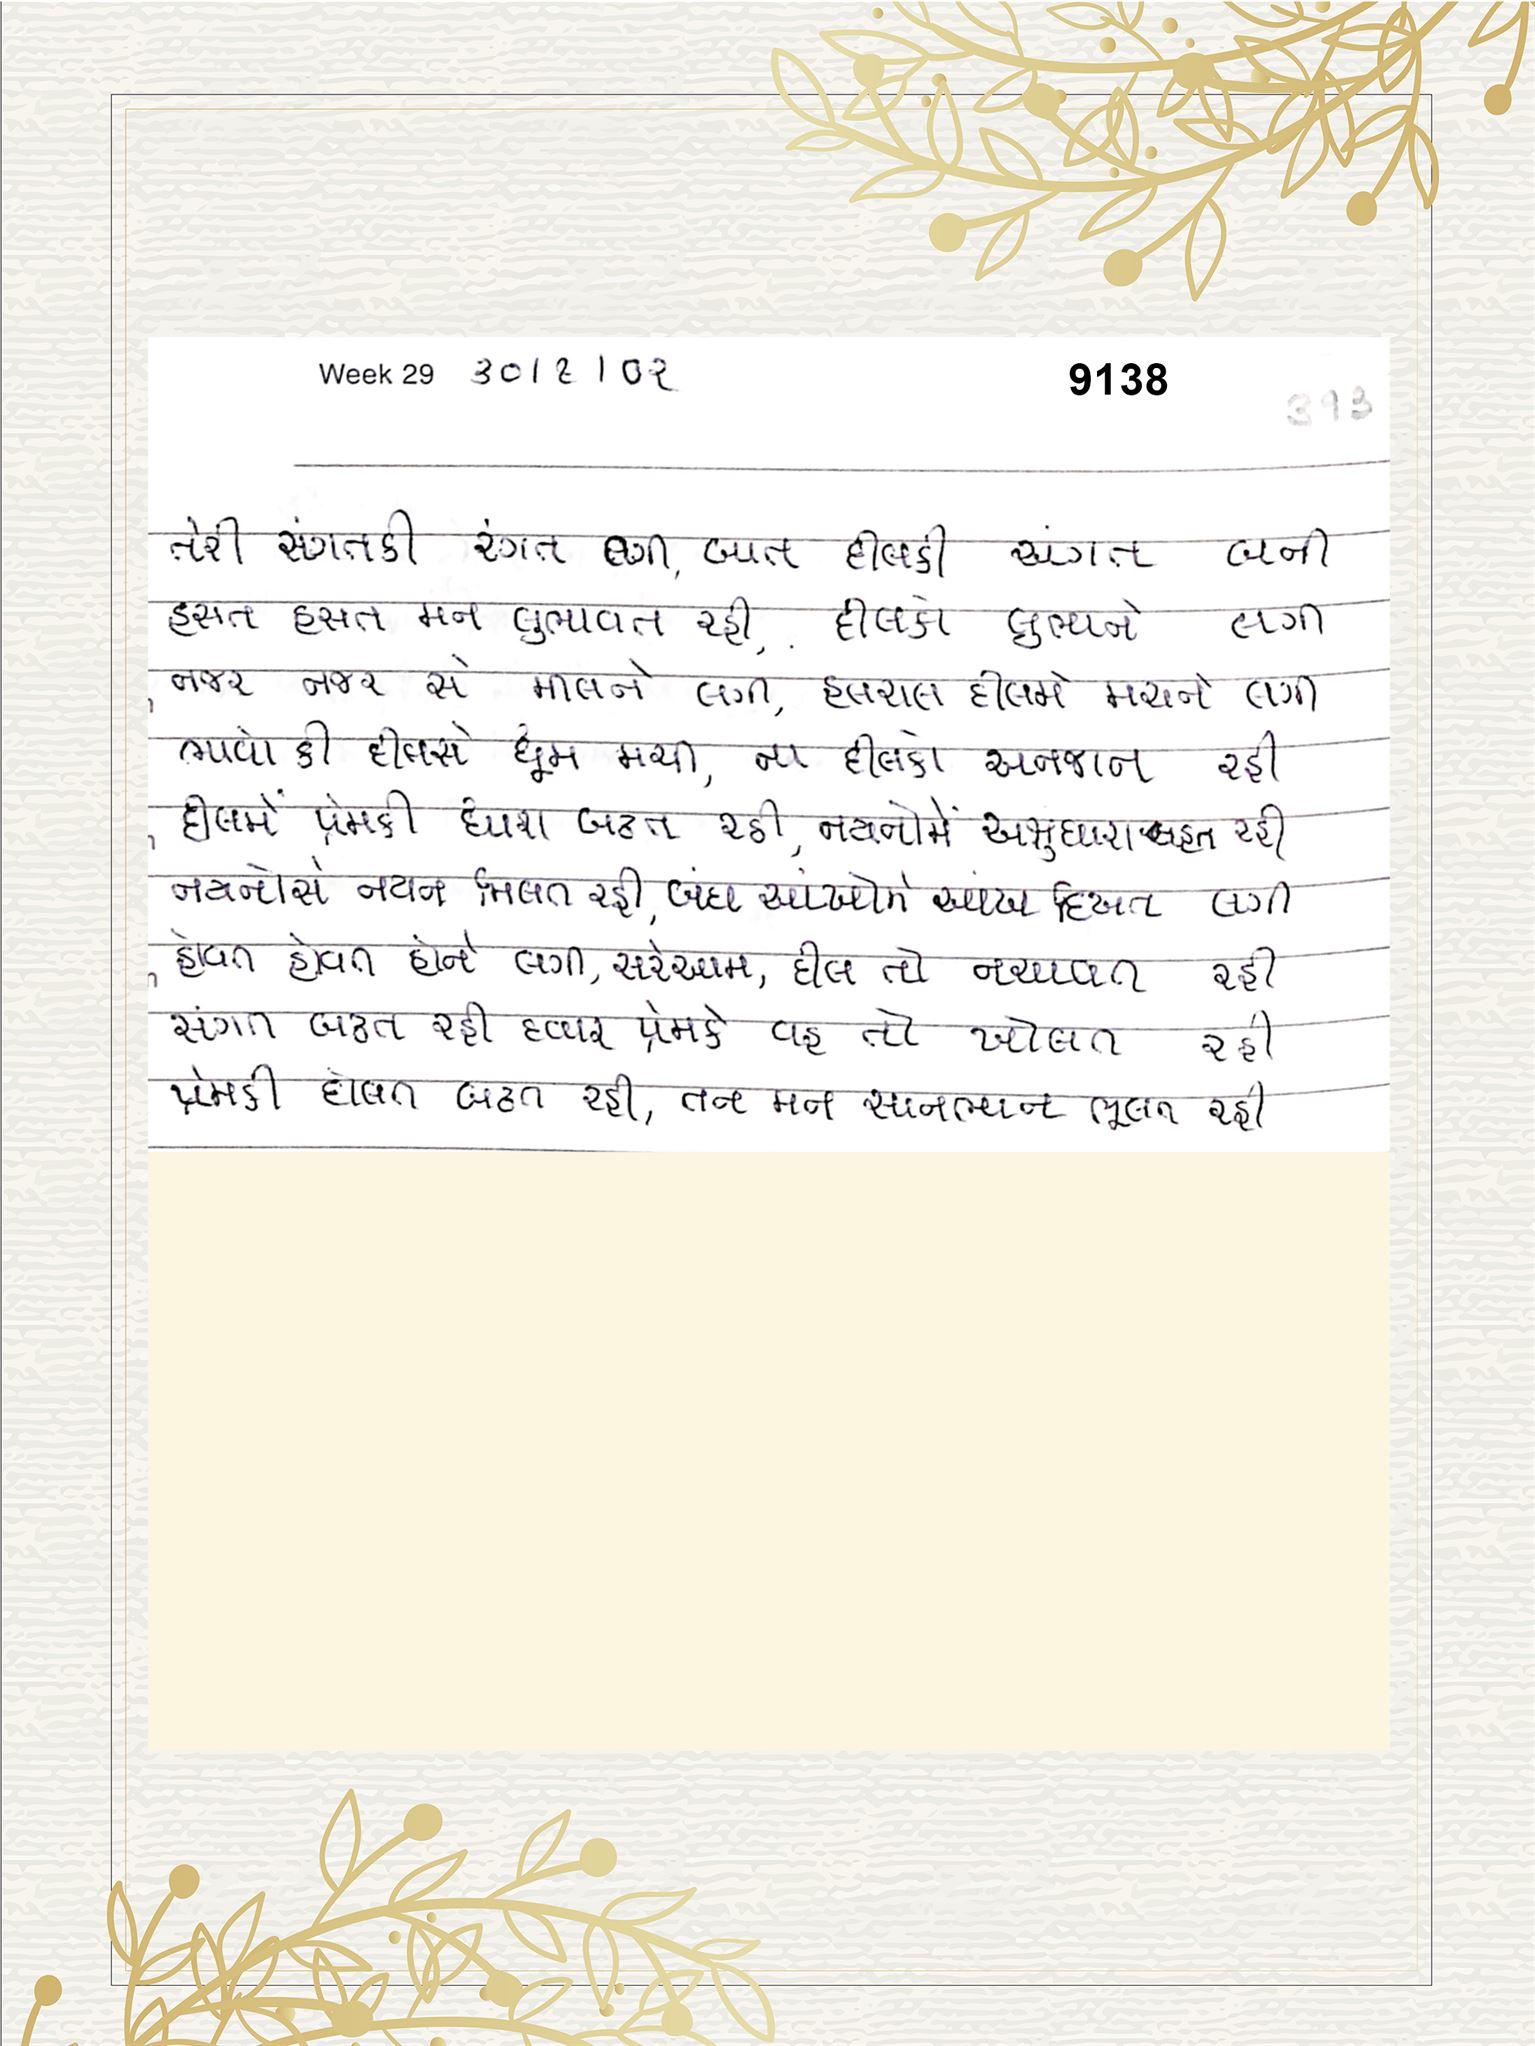 Week 29 ૩૦/૬/૦૨ 9138
393
તેરી સંગતકી રંગત લગી, બાત દીલકી અંગત બની
હસત હસત મન લુભાવત રહી, દીલકો લુભાને લગી
નજર નજર સે મીલને લગી, હલચલ દીલમે મચાને લગી
ભાવો કી દીલસે ધૂમ મચી, ના દીલકો અનજાન રહી
દીલમેં પ્રેમકી ધારા બઢત રહી, નયનોમેં અશ્રુધારા બહત રહી
નયનોસે નયન મિલત રહી, બંધ આંખોમે આંખ દિખત લગી
હોવત હોવત હોને લગી, સરેઆમ, દીલ તો નચાવત રહી
સંગત બઢત રહી દ્વાર પ્રેમકે વહ તો ખોલત રહી
પ્રેમકી દોલત બઢત રહી, તન મન સાનભાન ભૂલત રહી